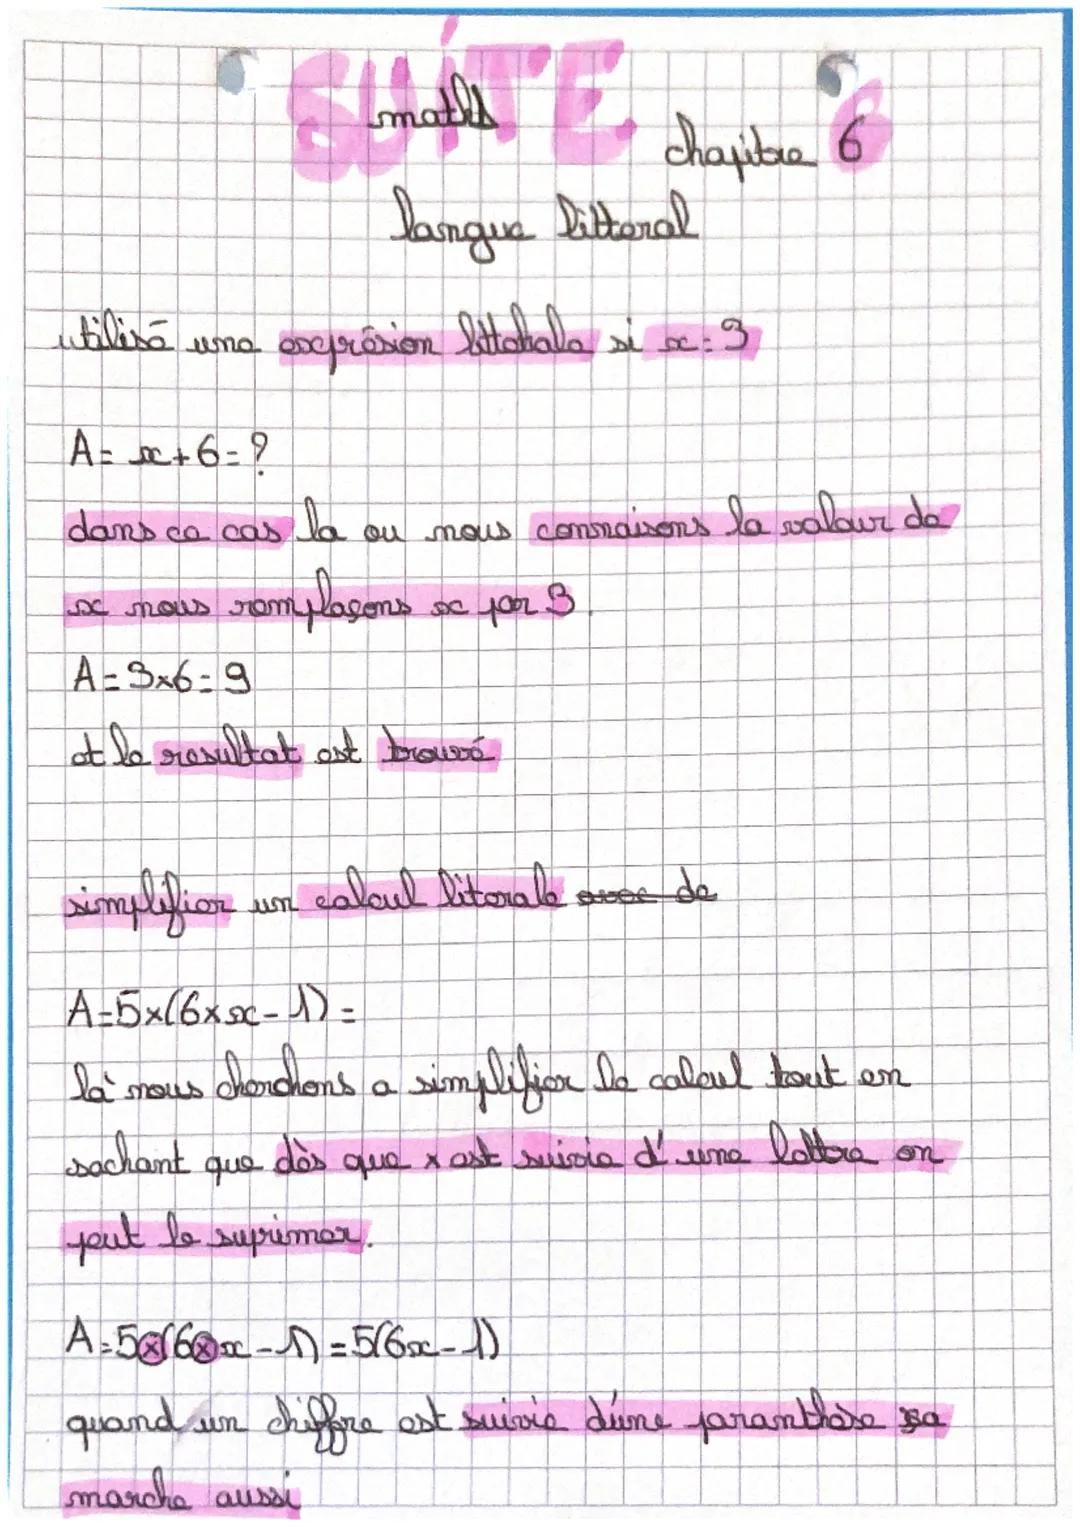 SUITE 6
maths
chapitre 6
langue litteral
utilisé une exprésion littohale si x=3
A= x+6=?
dans ce cas la ou nous connaisons la valeur de
x nous remplaçons x par 3.
A=3x6=9
et le resultat est trouvé
simplifier un calcul literale avec de
A=5x(6xx-1)=
là nous cherchons a simplifier le calcul tout en
sachant que dès que x est suivie d'une lettre on
peut le suprimer.
A=5x(6xx-1)=5(6x-1)
quand un chiffre est suivie d'une paranthèse sa
marche aussi